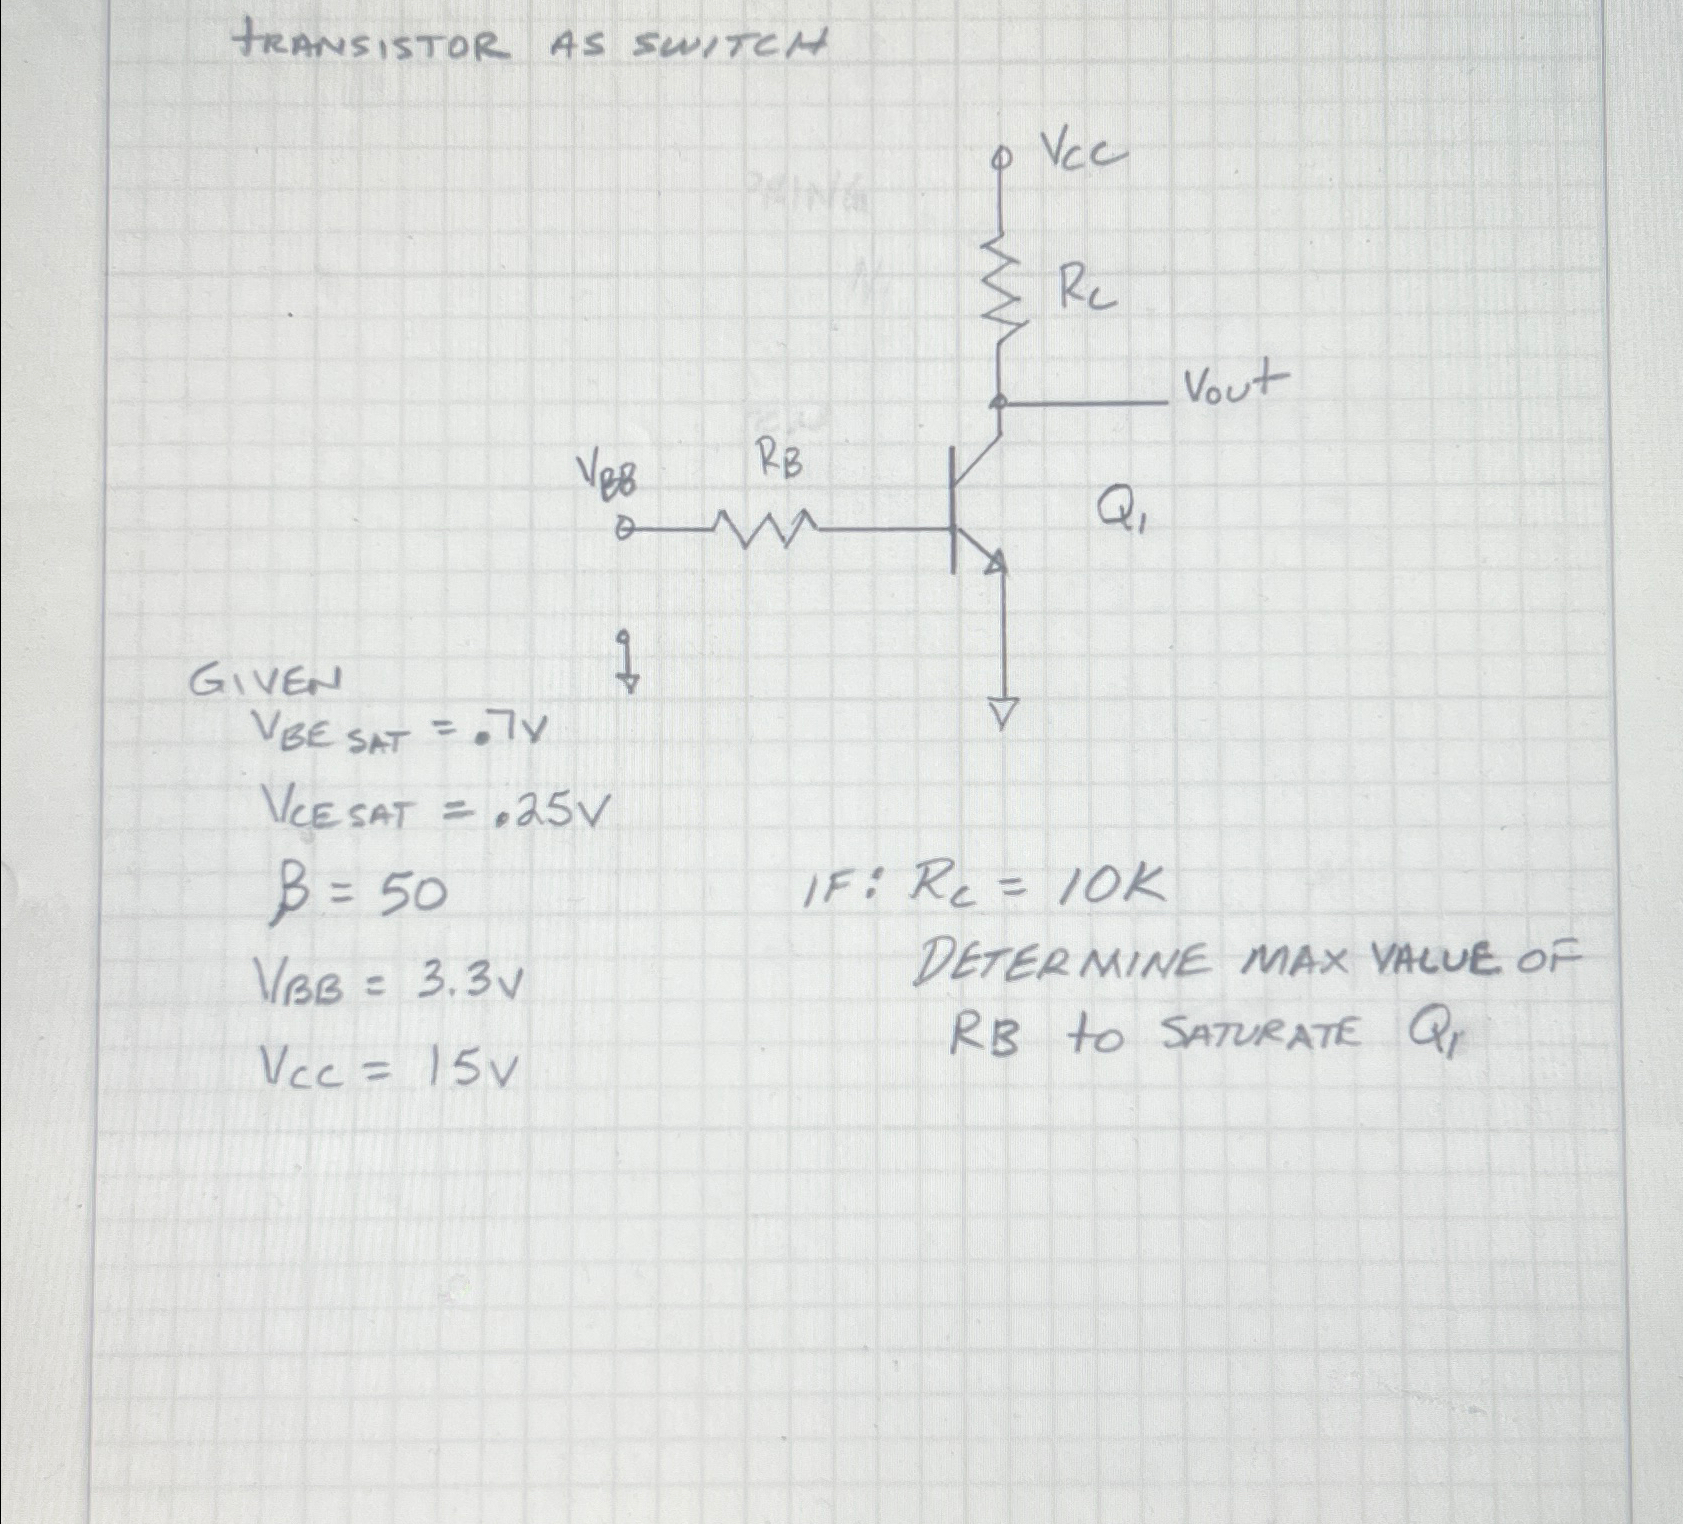 tRANSISTOR AS SWITCH
VCC
RC
Vout
VBB
RB
Q1
GIVEN
VBE SAT = .7V
VCE SAT = .25V
β = 50
VBB = 3.3V
VCC = 15V
IF: RC = 10K
DETERMINE MAX VALUE OF
RB to SATURATE Q1